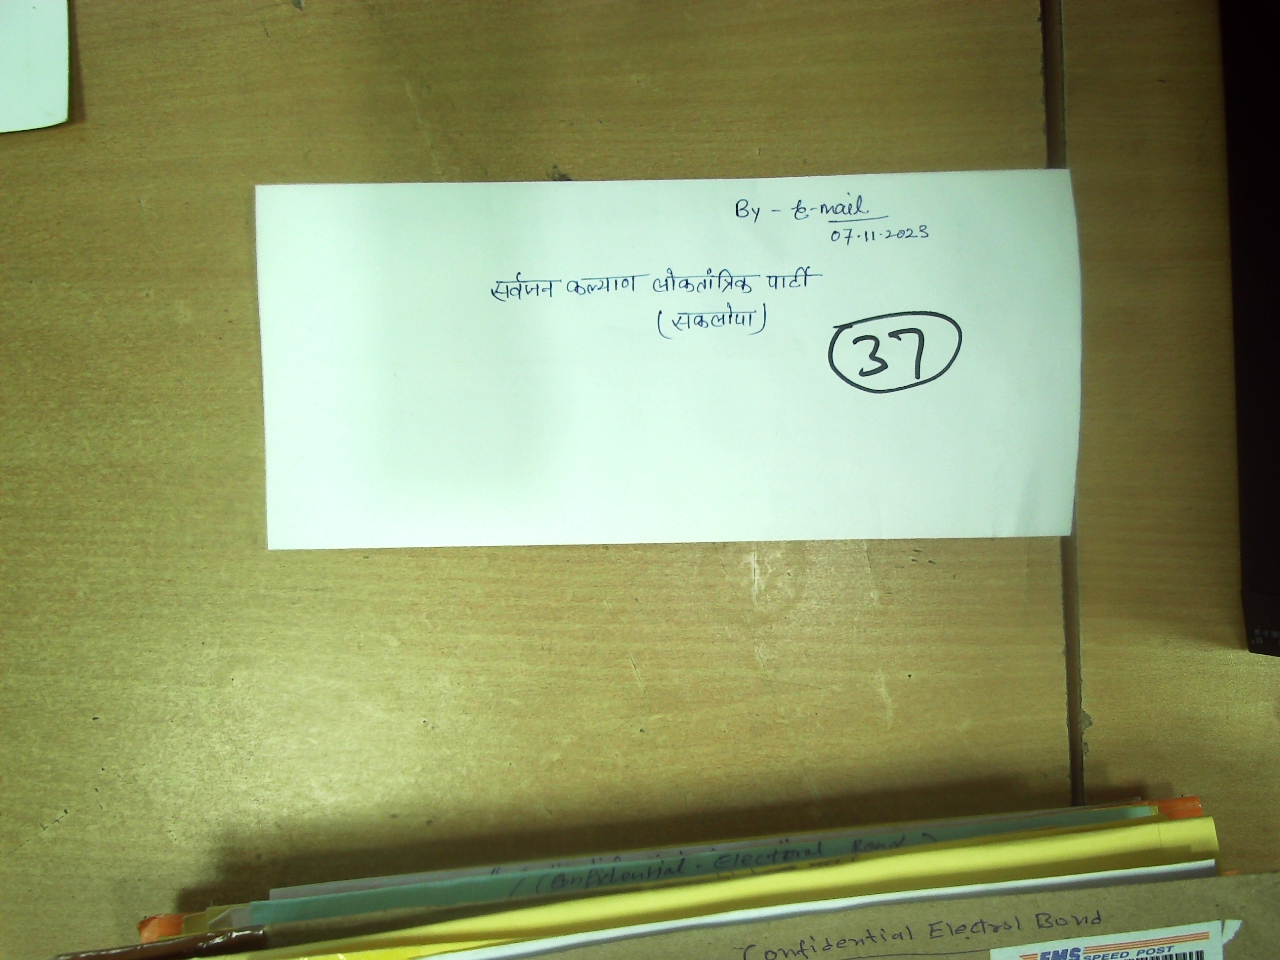 By - E-mail
07.11.2023
सर्वजन कल्याण लोकतांत्रिक पार्टी
(सकलोपा)
37
(Confidential - Electoral Bond)
Confidential Electrol Bond
EMS SPEED POST